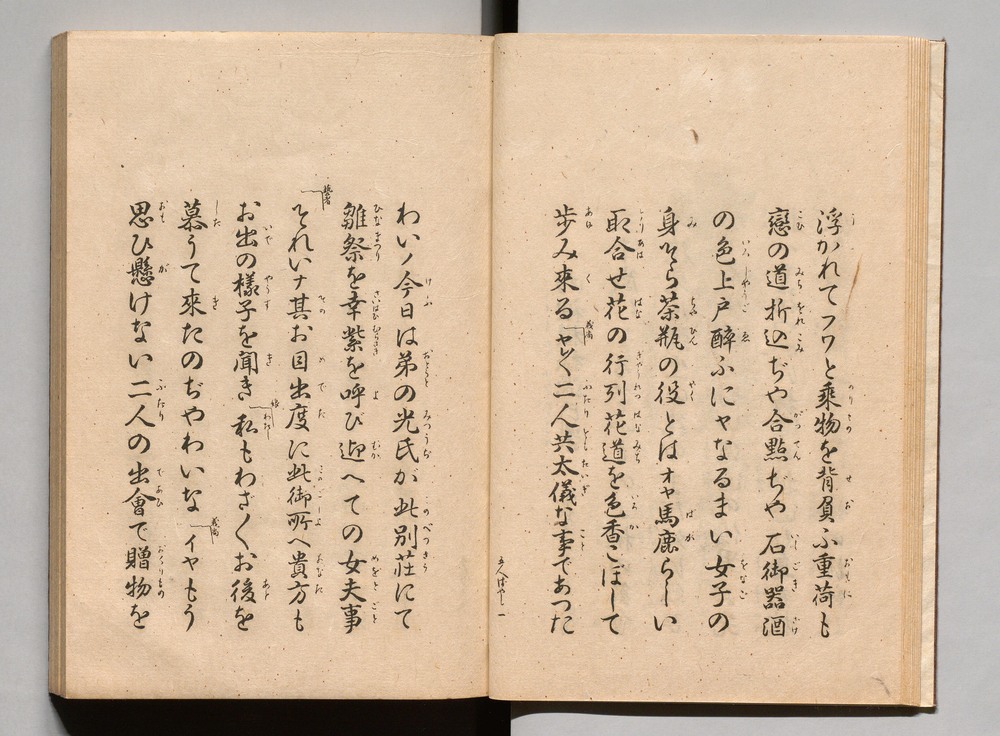 浮かれてフワと乗物を背負ふ重荷も
戀の道折込ぢや合點ぢや石御器酒
の色上戸醉ふにヤなるまい女子の
身そら茶瓶の役とはオヤ馬鹿らしい
取合せ花の行列花道を色香こぼして
歩み來る 義尚 ヤレ〱二人共太儀な事であつた
五人ばやし 一
わいノ今日は弟の光氏が此別荘にて
雛祭を幸紫を呼び迎へての女夫事
それいナ其お目出度に此御所へ貴方も
お出の樣子を聞き 私もわざ〱お後を
慕うて來たのぢやわいな 義尚 イヤもう
思ひ懸けない二人の出會で贈物を